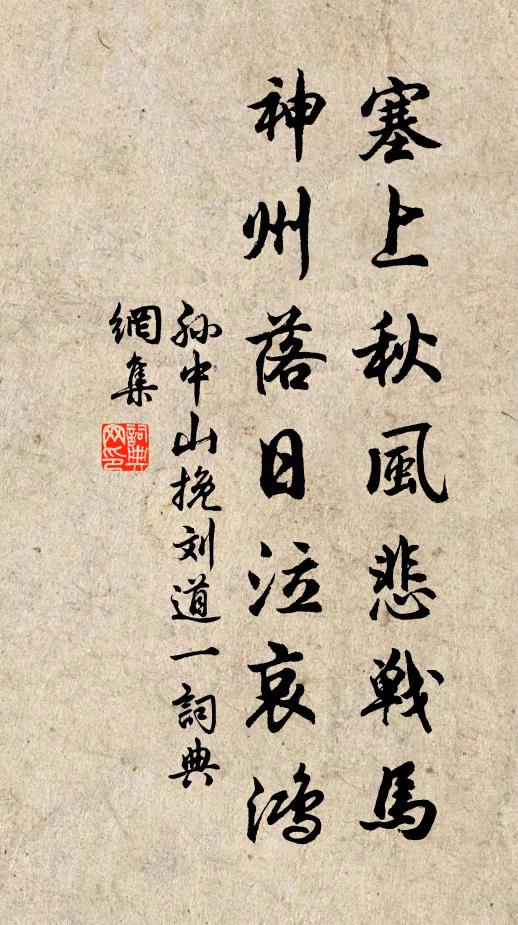 塞上秋風悲戰馬
神州落日泣哀鴻
孙中山挽刘道一詞典
網集
詞典
网印